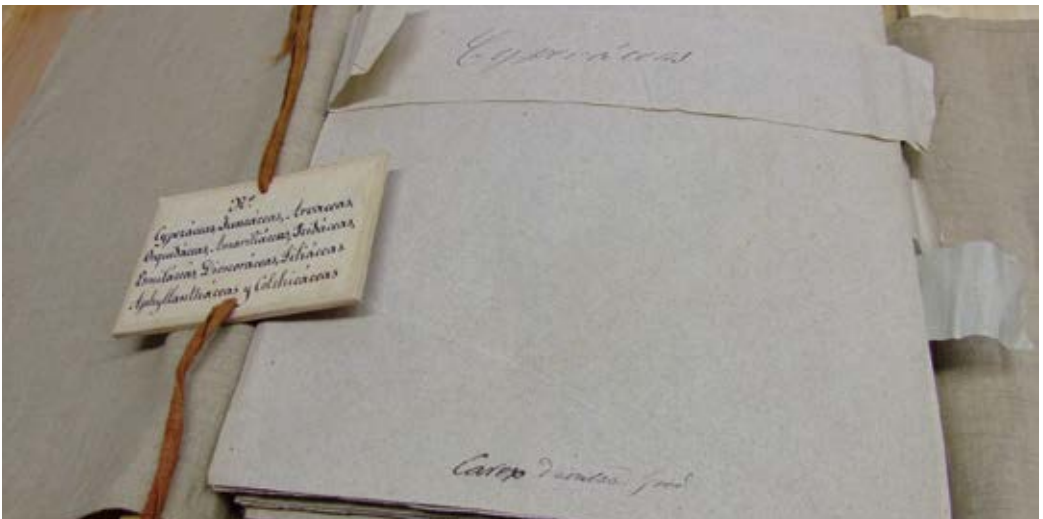 Cyperáceas
Nº
Cyperáceas, Juncáceas, Aroaceas,
Orquidáceas, Amarilidáceas, Iridáceas,
Esmiláceas, Dioscoráceas, Liliáceas
Aphyllantháceas y Colchicáceas
Carex